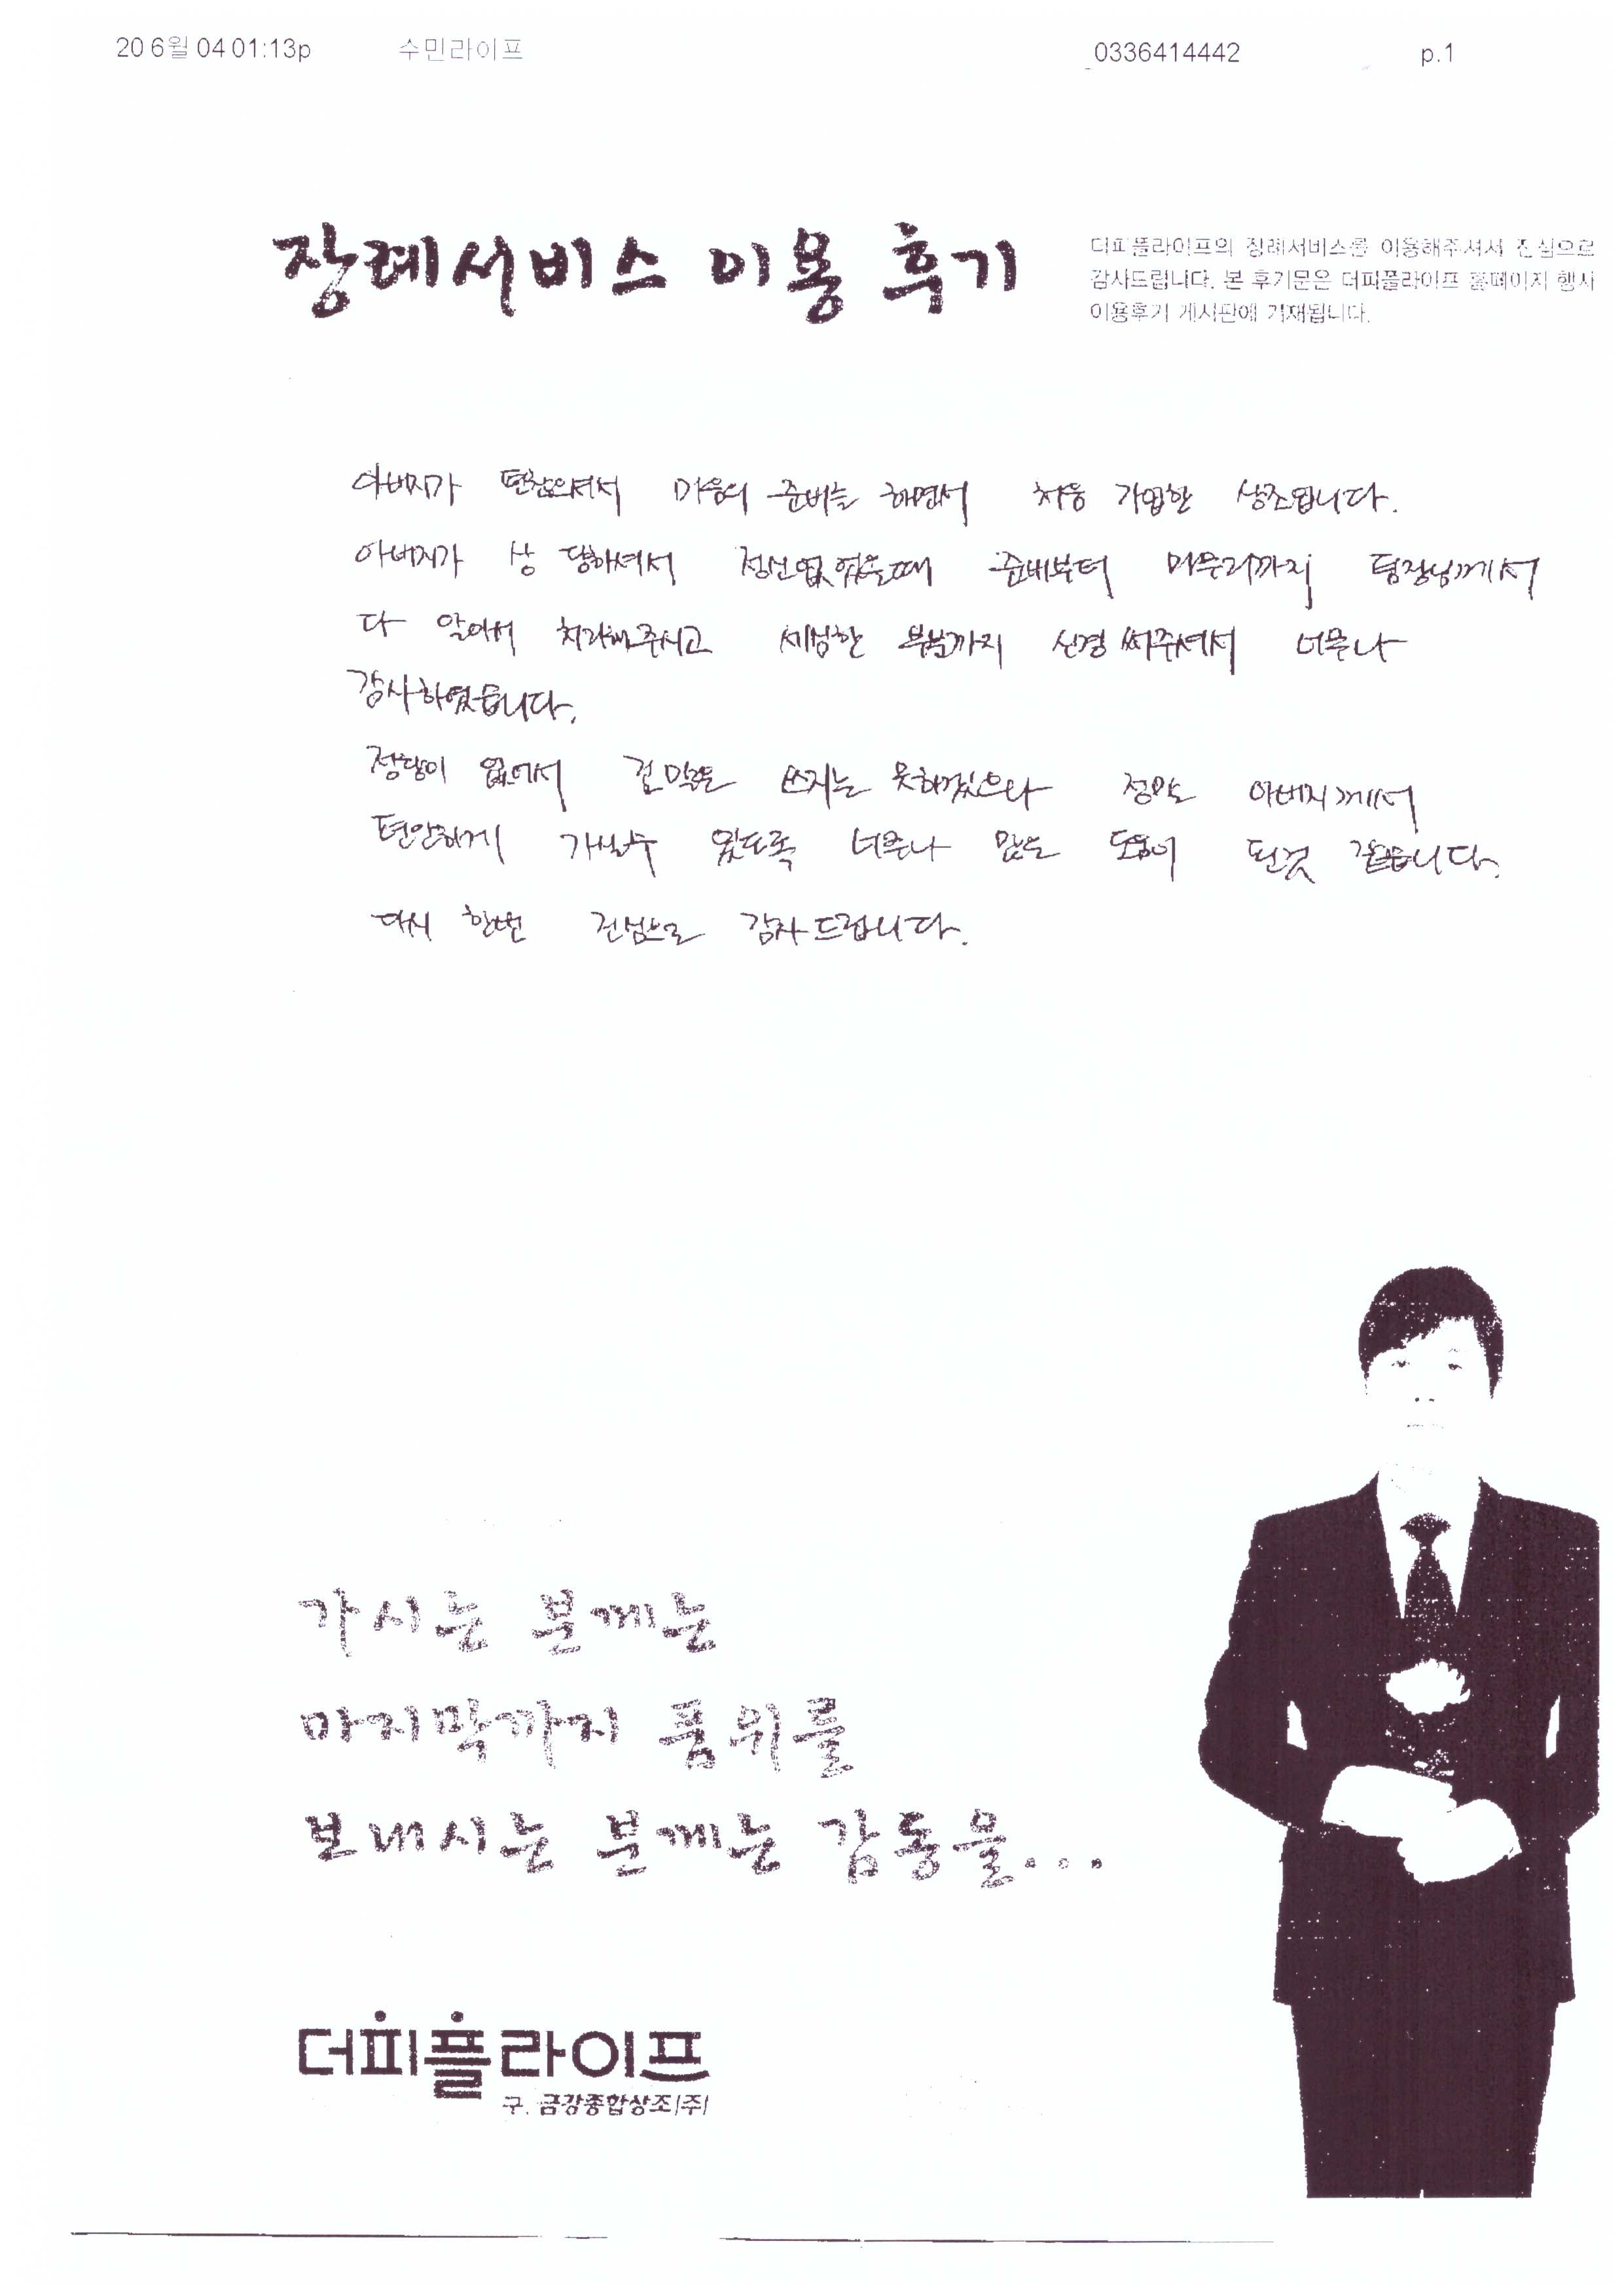 20 6월 04 01:13p 수민라이프 0336414442 p.1
장례서비스 이용 후기
더피플라이프의 장례서비스를 이용해주셔서 진심으로
감사드립니다. 본 후기문은 더피플라이프 홈페이지 행사
이용후기 게시판에 기재됩니다.
아버지가 편찮으셔서 마음의 준비는 하면서 처음 가입한 상조입니다.
아버지가 상 당하셔서 정신없었을때 준비부터 마무리까지 팀장님께서
다 알아서 처리해주시고 세심한 부분까지 신경 써주셔서 너무나
감사하였습니다.
정황이 없어서 긴 말은 쓰지는 못하겠으나 정말로 아버지께서
편안하게 가실수 있도록 너무나 많은 도움이 된것 같습니다.
다시 한번 진심으로 감사 드립니다.
가시는 분께는
마지막까지 품위를
보내시는 분께는 감동을...
더피플라이프
구. 금강종합상조(주)